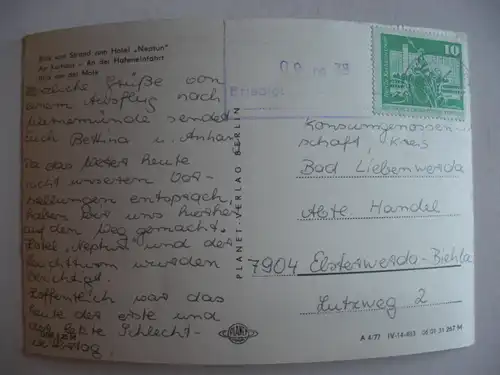 Blick vom Strand zum Hotel „Neptun"
Am Kurhaus – An der Hafeneinfahrt
Blick von der Mole
Herzliche Grüße von
einem Ausflug nach
Warnemünde sendet
Euch Bettina u. Anhang
Da das Wetter heute
nicht unseren Vor-
stellungen entsprach,
haben wir uns hierher
auf den Weg gemacht.
Hotel „Neptun" und der
Leuchtturm wurden
besichtigt.
Hoffentlich war das
heute der erste und
der letzte Schlecht-
wettertag.
PLANET-VERLAG BERLIN
PLANET
10
Konsumgenossen-
schaft, Kreis
Bad Liebenwerda
Abt. Handel
7904 Elsterwerda-Biehla
Lutxweg 2
A 4/77 IV-14-483 05 01 31 267 M